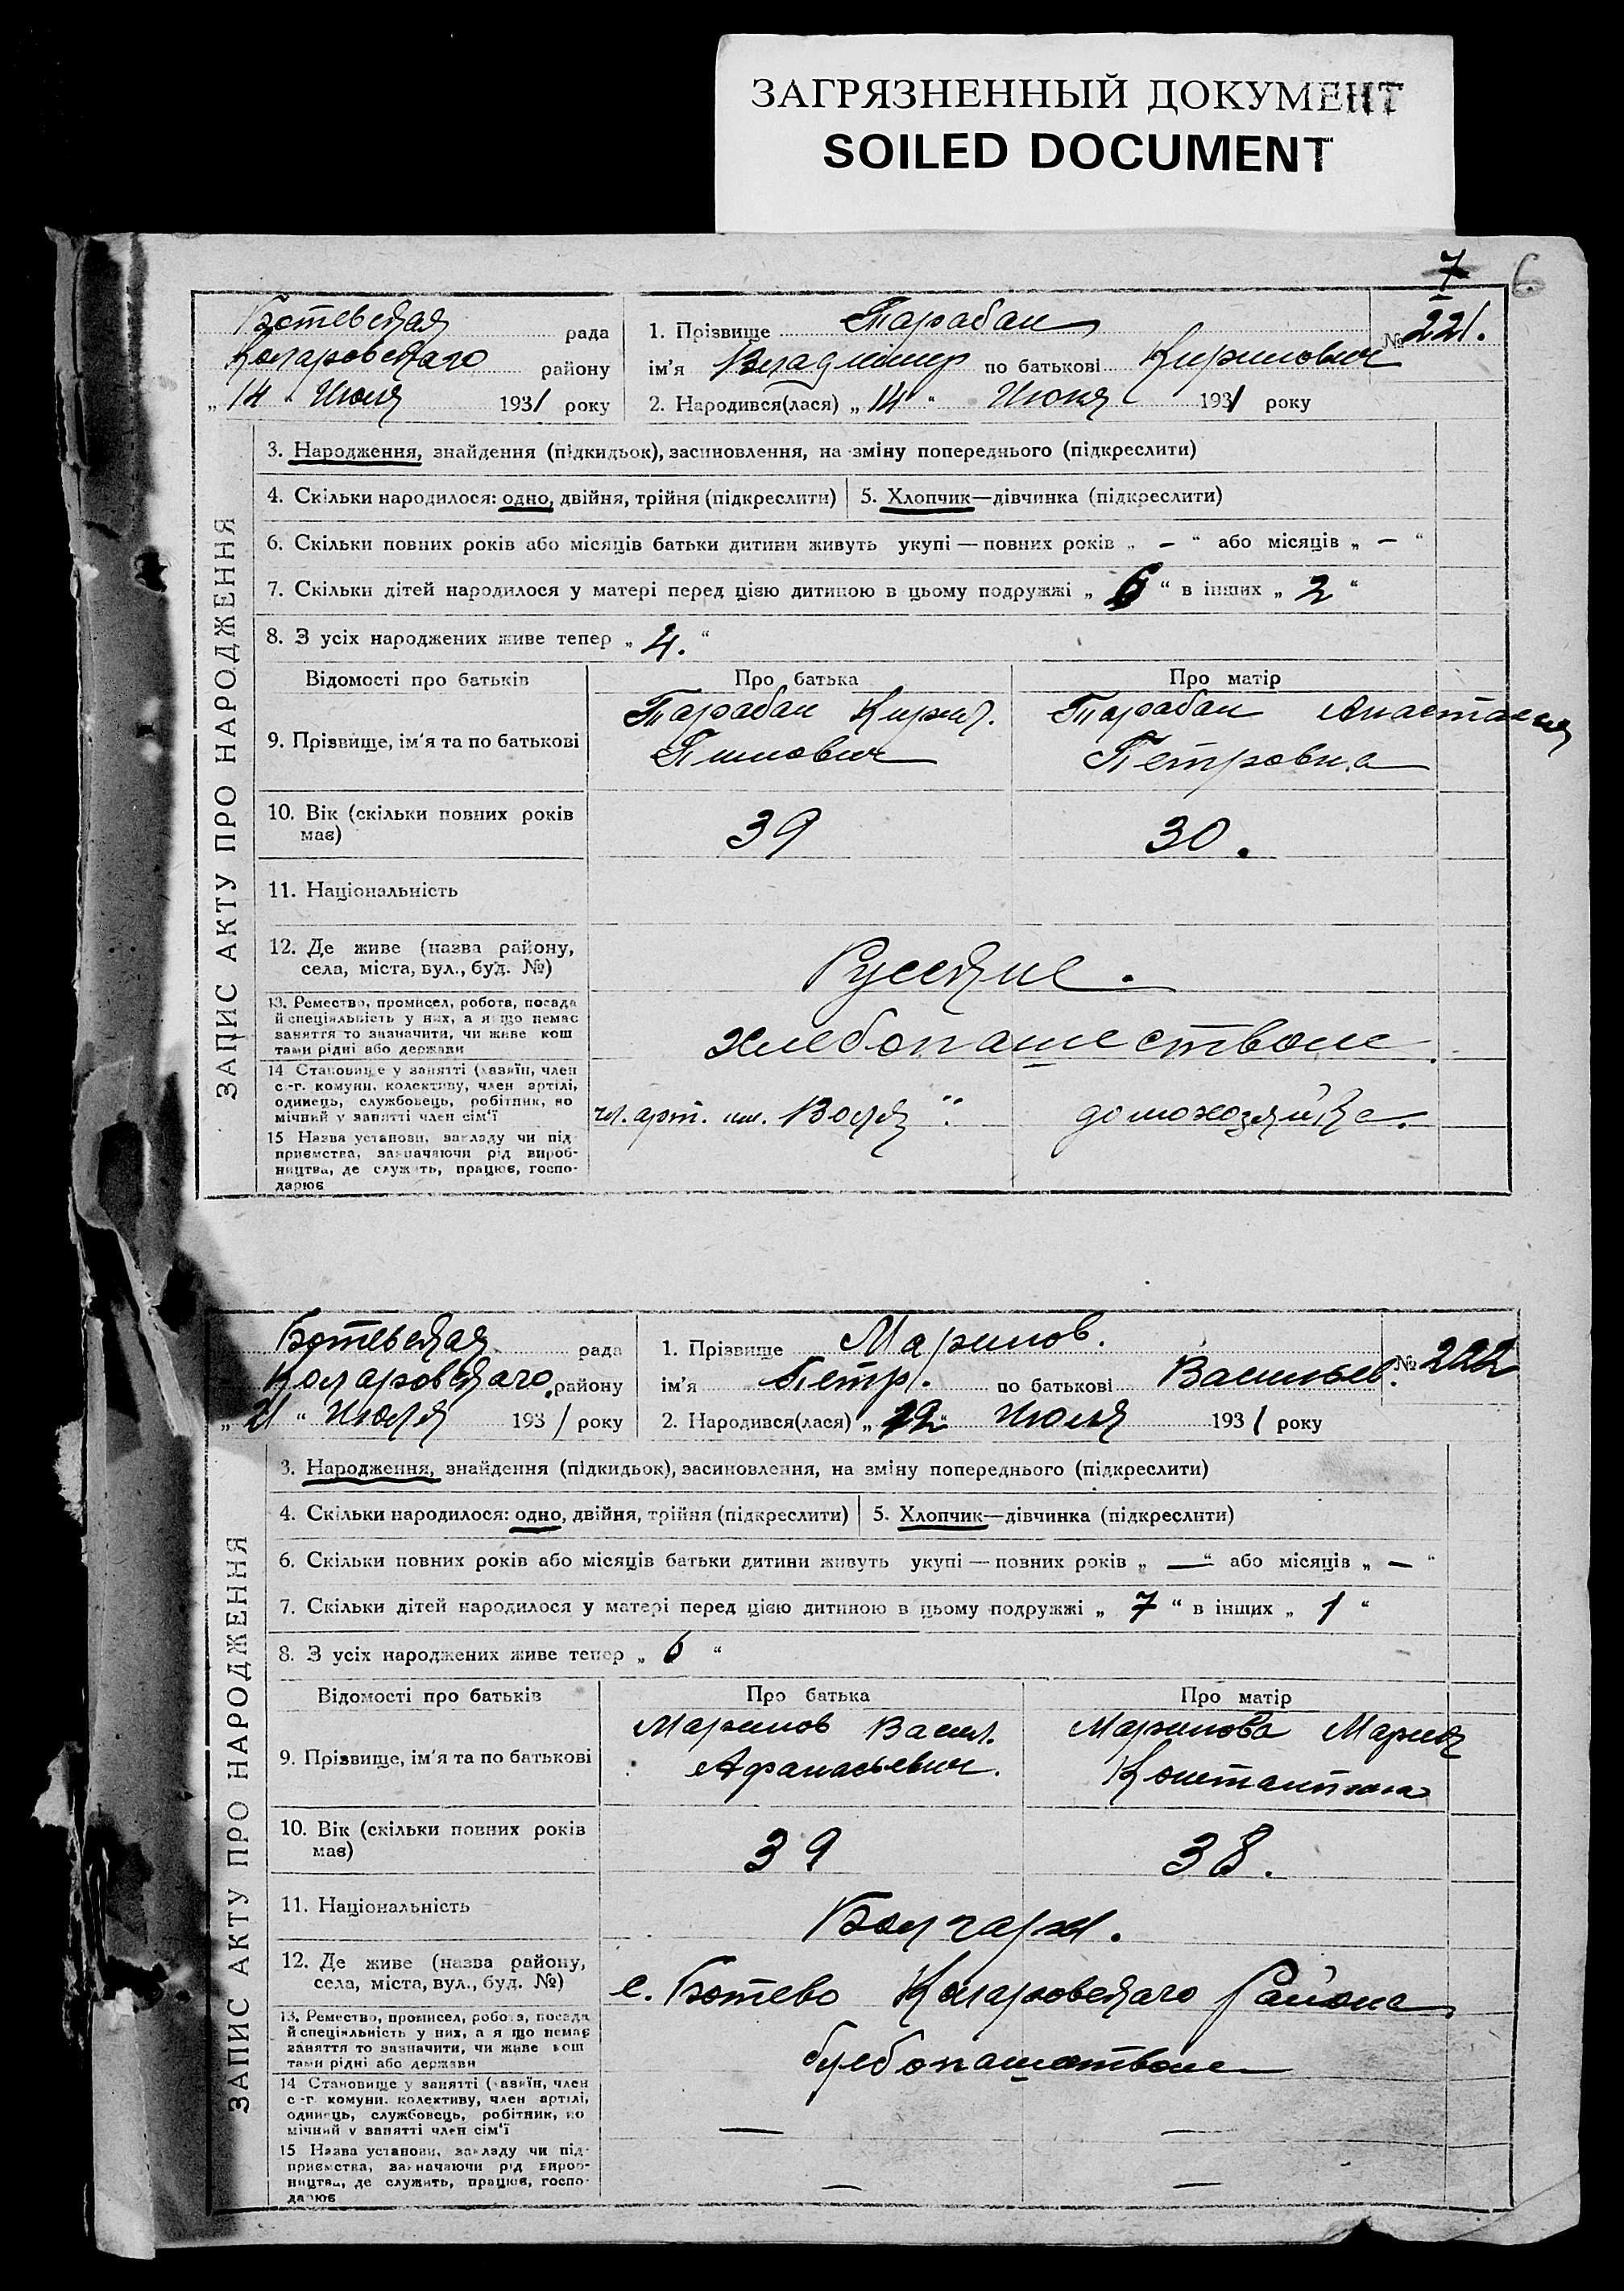 ЗАГРЯЗНЕННЫЙ ДОКУМЕНТ
SOILED DOCUMENT
7 6
Ботевская рада
Коларовского району
„14 " Июля 1931 року
1. Прізвище Тарабан
№ 221.
ім'я Владимир по батькові Кирилович
2. Народився(лася) „14" Июня 1931 року
ЗАПИС АКТУ ПРО НАРОДЖЕННЯ
3. Народження, знайдення (підкидьок), засиновлення, на зміну попереднього (підкреслити)
4. Скільки народилося: одно, двійня, трійня (підкреслити) 5. Хлопчик—дівчинка (підкреслити)
6. Скільки повних років або місяців батьки дитини живуть укупі — повних років „ – " або місяців „ – "
7. Скільки дітей народилося у матері перед цією дитиною в цьому подружжі „ 6 " в інших „ 2 "
8. З усіх народжених живе тепер „ 4. "
Відомості про батьків Про батька Про матір
9. Прізвище, ім'я та по батькові
Тарабан Кирил.
Тарабан Анастасия
Петровна
10. Вік (скільки повних років має)
39 30.
11. Національність
12. Де живе (назва району, села, міста, вул., буд. №)
Русские.
13. Ремество, промисел, робота, посада
й спеціяльність у них, а якщо немає
заняття то зазначити, чи живе кош
тами рідні або держави
хлебопашеством.
14 Становище у занятті (хазяїн, член
с.-г. комуни, колективу, член артілі,
одинець, службовець, робітник, по
мічний у занятті член сім'ї
чл. арт. им. домохозяйка.
15 Назва установи, закладу чи під
приємства, зазначаючи рід вироб-
ництва, де служить, працює, госпо-
дарює
Ботевская рада
Коларовского району
„21 " Июля 1931 року
1. Прізвище Маринов.
№ 222
ім'я Петр. по батькові Васильев.
2. Народився(лася) „12" Июля 1931 року
ЗАПИС АКТУ ПРО НАРОДЖЕННЯ
3. Народження, знайдення (підкидьок), засиновлення, на зміну попереднього (підкреслити)
4. Скільки народилося: одно, двійня, трійня (підкреслити) 5. Хлопчик—дівчинка (підкреслити)
6. Скільки повних років або місяців батьки дитини живуть укупі — повних років „ — " або місяців „ – "
7. Скільки дітей народилося у матері перед цією дитиною в цьому подружжі „ 7 " в інших „ 1 "
8. З усіх народжених живе тепер „ 6 "
Відомості про батьків Про батька Про матір
9. Прізвище, ім'я та по батькові
Маринов Васил. Маринова Мария
Афанасьевич. Константиновна
10. Вік (скільки повних років має)
39 38.
11. Національність
Болгары.
12. Де живе (назва району, села, міста, вул., буд. №)
с. Ботево Коларовского района
13. Ремество, промисел, робота, посада
й спеціяльність у них, а якщо немає
заняття то зазначити, чи живе кош
тами рідні або держави
хлебопашеством
14 Становище у занятті (хазяїн, член
с.-г. комуни, колективу, член артілі,
одинець, службовець, робітник, по
мічний у занятті член сім'ї
— —
15 Назва установи, закладу чи під-
приємства, зазначаючи рід вироб-
ництва, де служить, працює, госпо-
дарює
— —